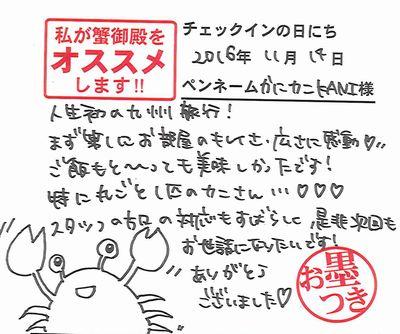 私が蟹御殿を
オススメ
します!!
チェックインの日にち
2016年 11月 14日
ペンネームかにカニKANI様
人生初の九州旅行!
お部屋の
広さに感動♡
ご飯もと〜っても美味しかったです!
特に丸ごと1匹のカニさん…♡♡♡
スタッフの方の対応もすばらしく 是非次回も
お世話になりたいです!
ありがとう
ございました♡
お墨つき